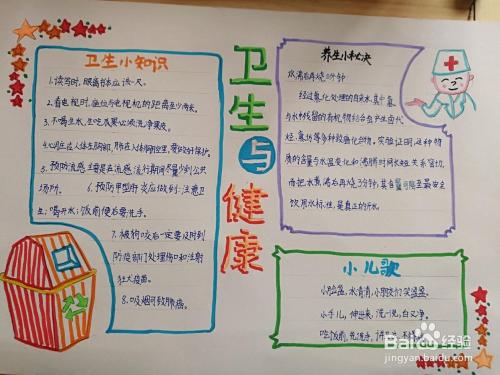 卫生小知识
1.读写时,眼离书本应该一尺。
2.看电视时,座位与电视机的距离至少两米。
3.不喝生水,生吃瓜果必须洗净果皮。
4.心脏在人体左胸部,肺在人体胸腔里,要好好保护。
5.预防流感主要是在流感流行期间尽量少到公共
场所。 6.预防甲型肝炎应做到:注意卫
生;喝开水;饭前便后要洗手。
7.被狗咬后一定要及时到
防疫部门处理伤口和注射
狂犬疫苗。
8.吸烟可致肺癌。
卫生与健康
养生小秘诀
水沸后再烧3分钟
经过氯化处理的自来水,其中氯
与水中残留的有机物结合会产生卤代
烃、氯仿等多种致癌化合物。实验证明,这种物
质的含量与水温变化和沸腾时间长短关系密切,
而把水煮沸后再烧3分钟,其含量可降至最安全
饮用水标准,是真正的开水
小儿歌
小脸盆,水清清,小朋友们笑盈盈,
小手儿,伸出来,洗一洗,白又净,
吃饭前,先洗手,讲卫生
Baidu经验
jingyan.baidu.com